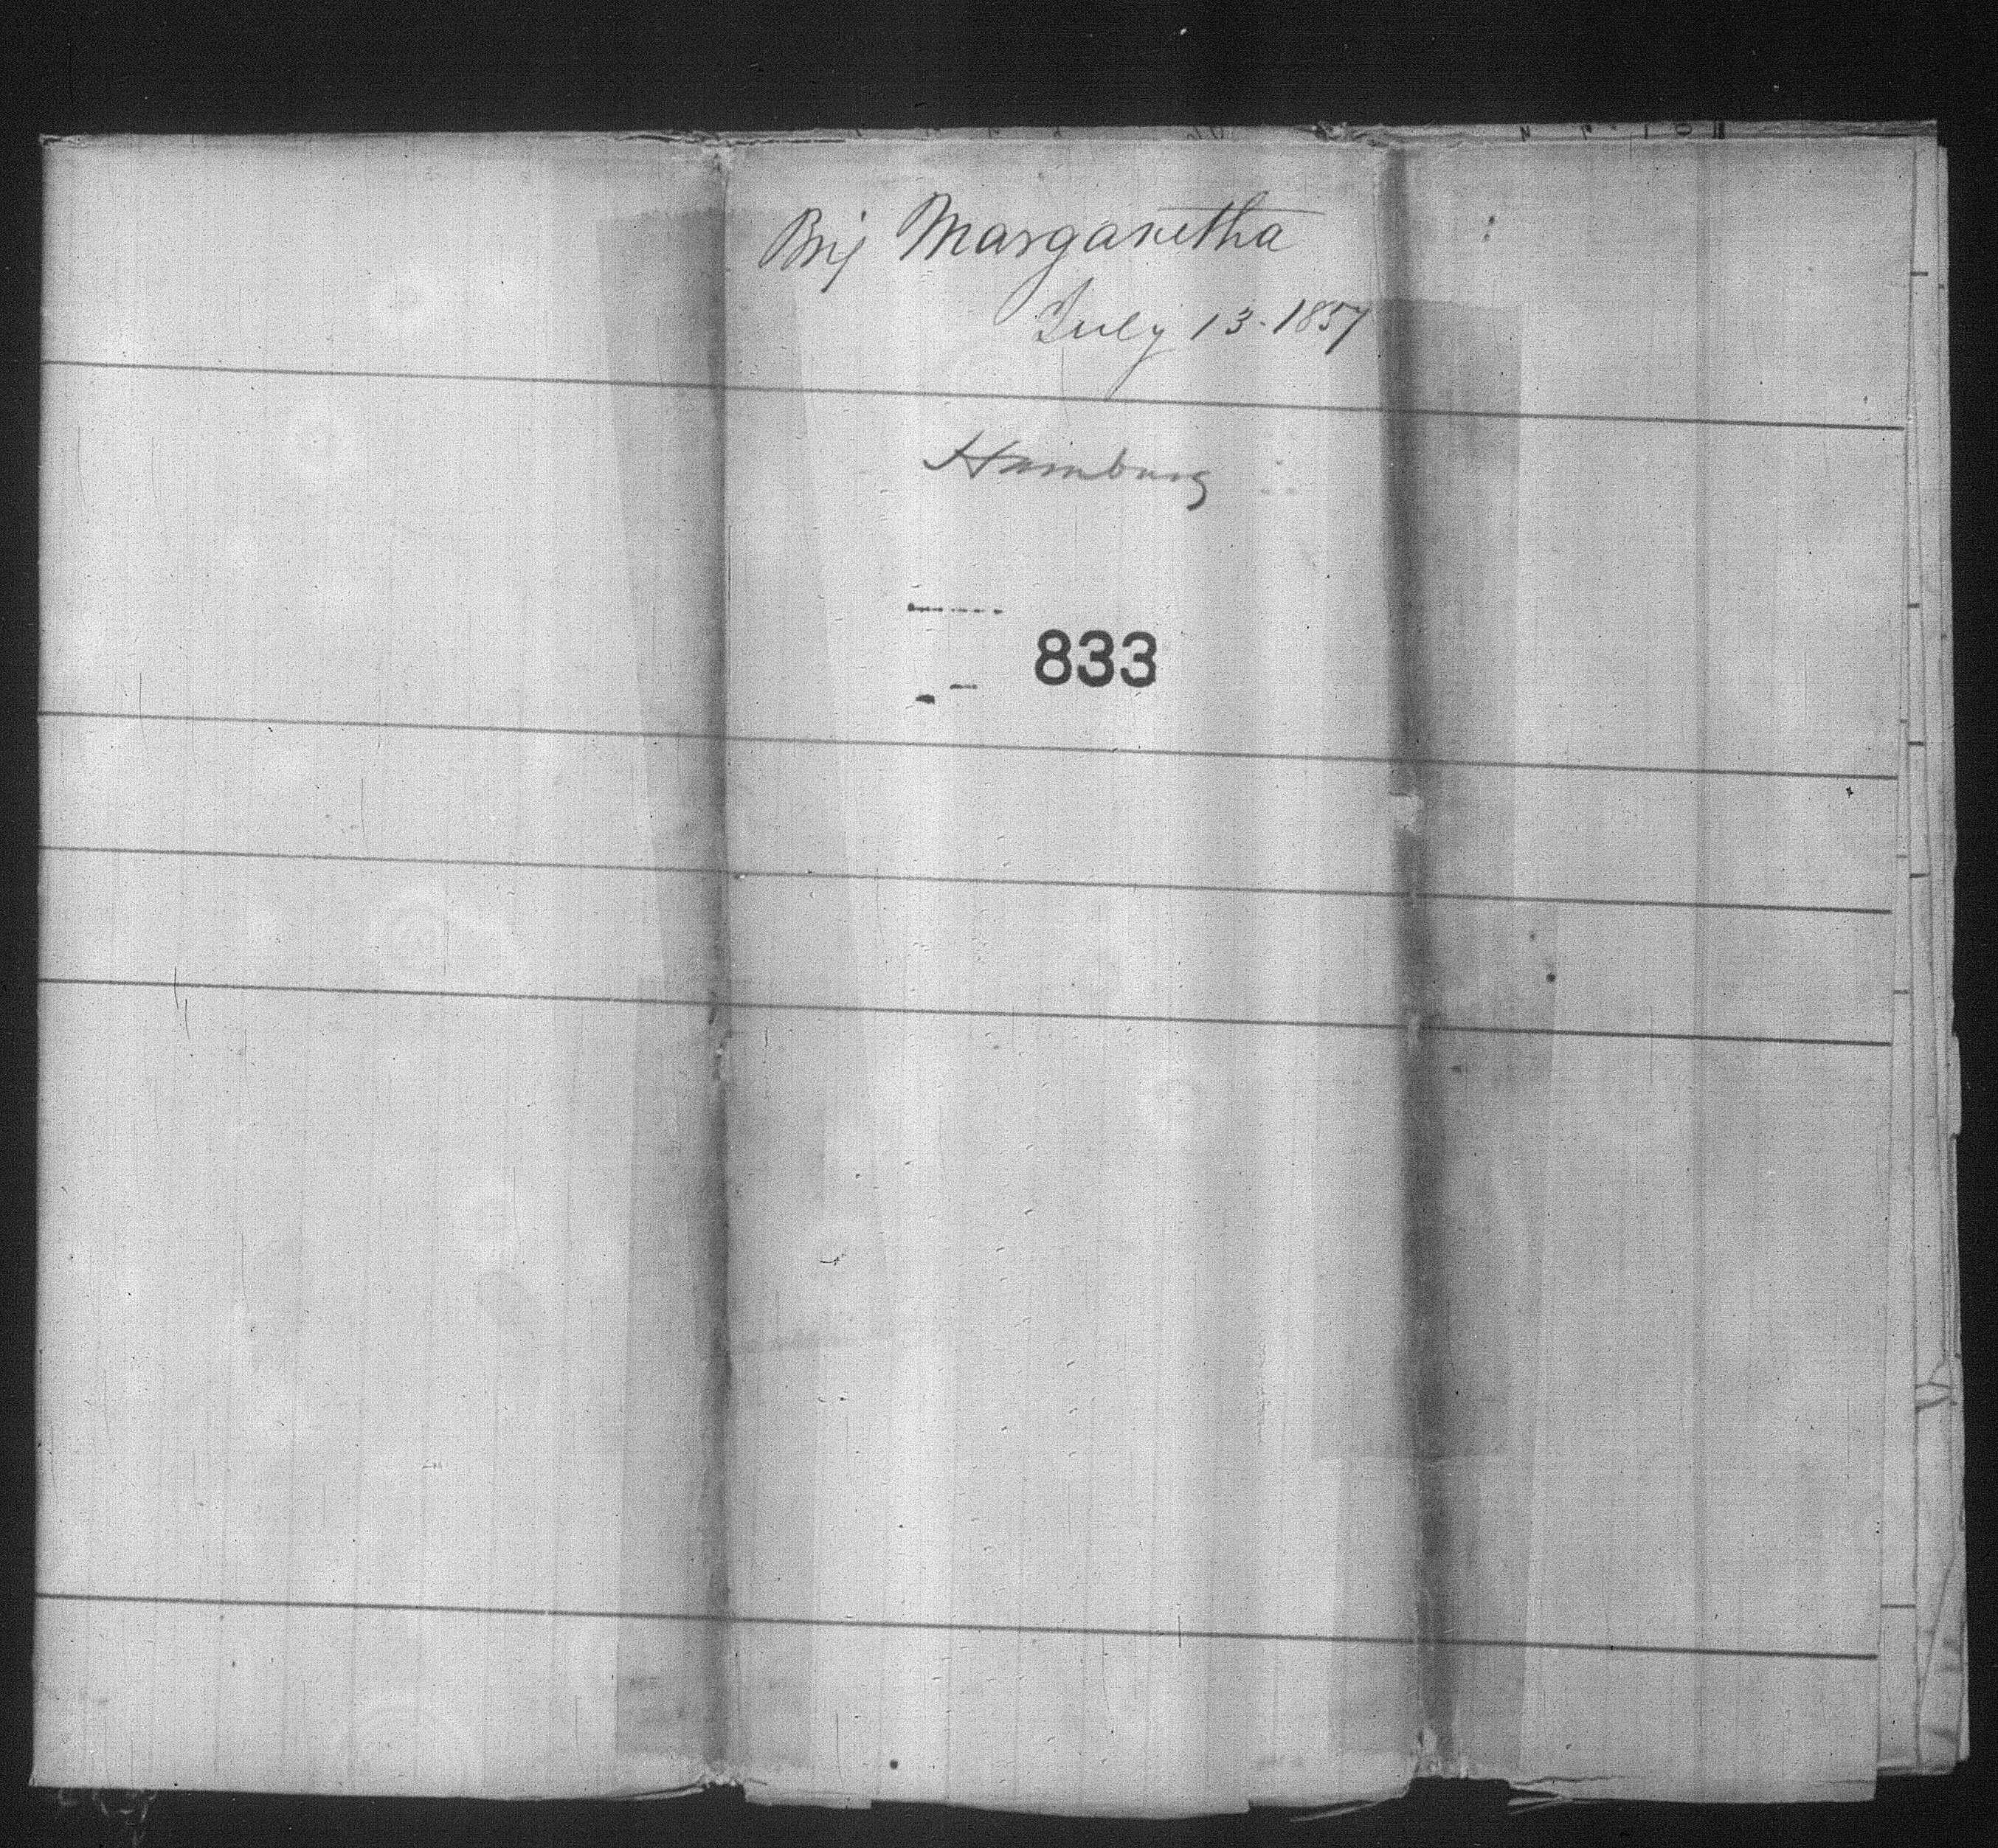 Brig Margaretha
July 13. 1857
Hamburg
833